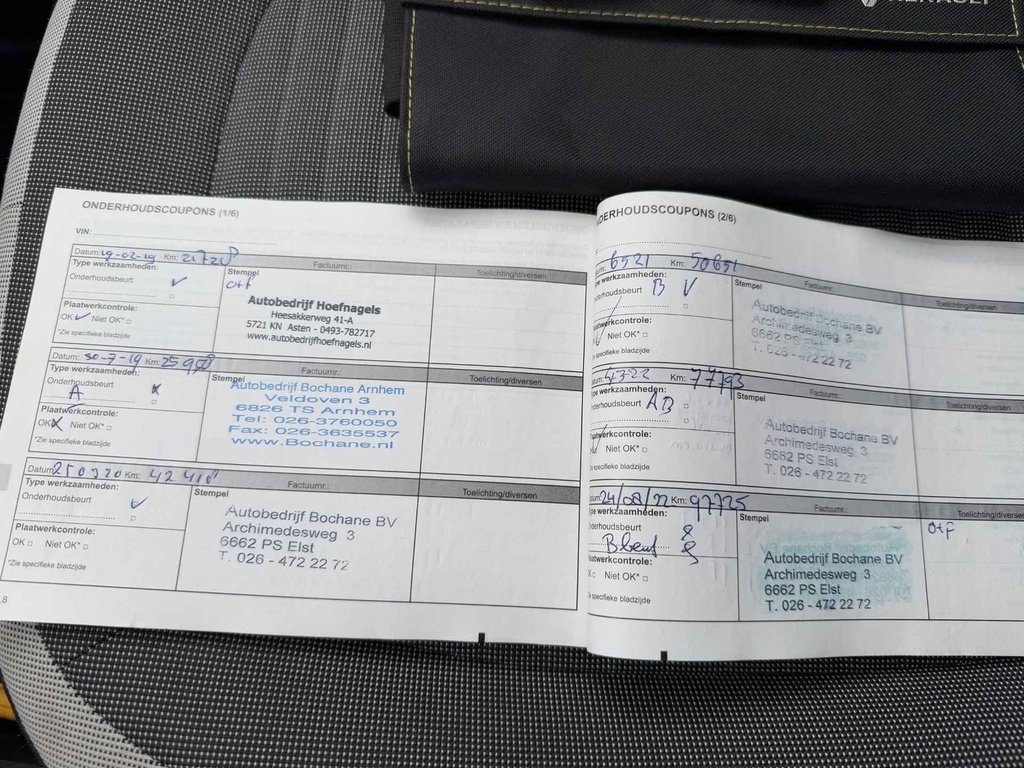 RENAULT
ONDERHOUDSCOUPONS (1/6)
VIN:
Datum: 19-02-19 Km: 21728
Factuurnr.:
Toelichting/diversen
Type werkzaamheden:
Onderhoudsbeurt
Stempel
O+F
Autobedrijf Hoefnagels
Heesakkerweg 41-A
5721 KN Asten - 0493-782717
www.autobedrijfhoefnagels.nl
Plaatwerkcontrole:
OK Niet OK*
*Zie specifieke bladzijde
Datum: 30-7-19 Km: 25 958
Factuurnr.:
Toelichting/diversen
Type werkzaamheden:
Onderhoudsbeurt
A
Stempel
Autobedrijf Bochane Arnhem
Veldoven 3
6826 TS Arnhem
Tel: 026-3760050
Fax: 026-3635537
www.Bochane.nl
Plaatwerkcontrole:
OK Niet OK*
*Zie specifieke bladzijde
Datum: 250720 Km: 42418
Factuurnr.:
Toelichting/diversen
Type werkzaamheden:
Onderhoudsbeurt
Stempel
Autobedrijf Bochane BV
Archimedesweg 3
6662 PS Elst
T. 026 - 472 22 72
Plaatwerkcontrole:
OK Niet OK*
*Zie specifieke bladzijde
.8
ONDERHOUDSCOUPONS (2/6)
6521 Km: 50651
Factuurnr.:
Toelichting/diversen
Type werkzaamheden:
Onderhoudsbeurt B V
Stempel
Autobedrijf Bochane BV
Archimedesweg 3
6662 PS Elst
T. 026 - 472 22 72
Plaatwerkcontrole:
Niet OK*
specifieke bladzijde
4322 Km: 77793
Factuurnr.:
Toelichting/diversen
type werkzaamheden:
Onderhoudsbeurt AB
Stempel
Autobedrijf Bochane BV
Archimedesweg 3
6662 PS Elst
T. 026 - 472 22 72
Plaatwerkcontrole:
Niet OK*
specifieke bladzijde
Datum: 24/08/22 Km: 97725
Factuurnr.:
Toelichting/diversen
Type werkzaamheden:
Onderhoudsbeurt
B beurt
Stempel
O+F
Autobedrijf Bochane BV
Archimedesweg 3
6662 PS Elst
T. 026 - 472 22 72
Plaatwerkcontrole:
Niet OK*
specifieke bladzijde